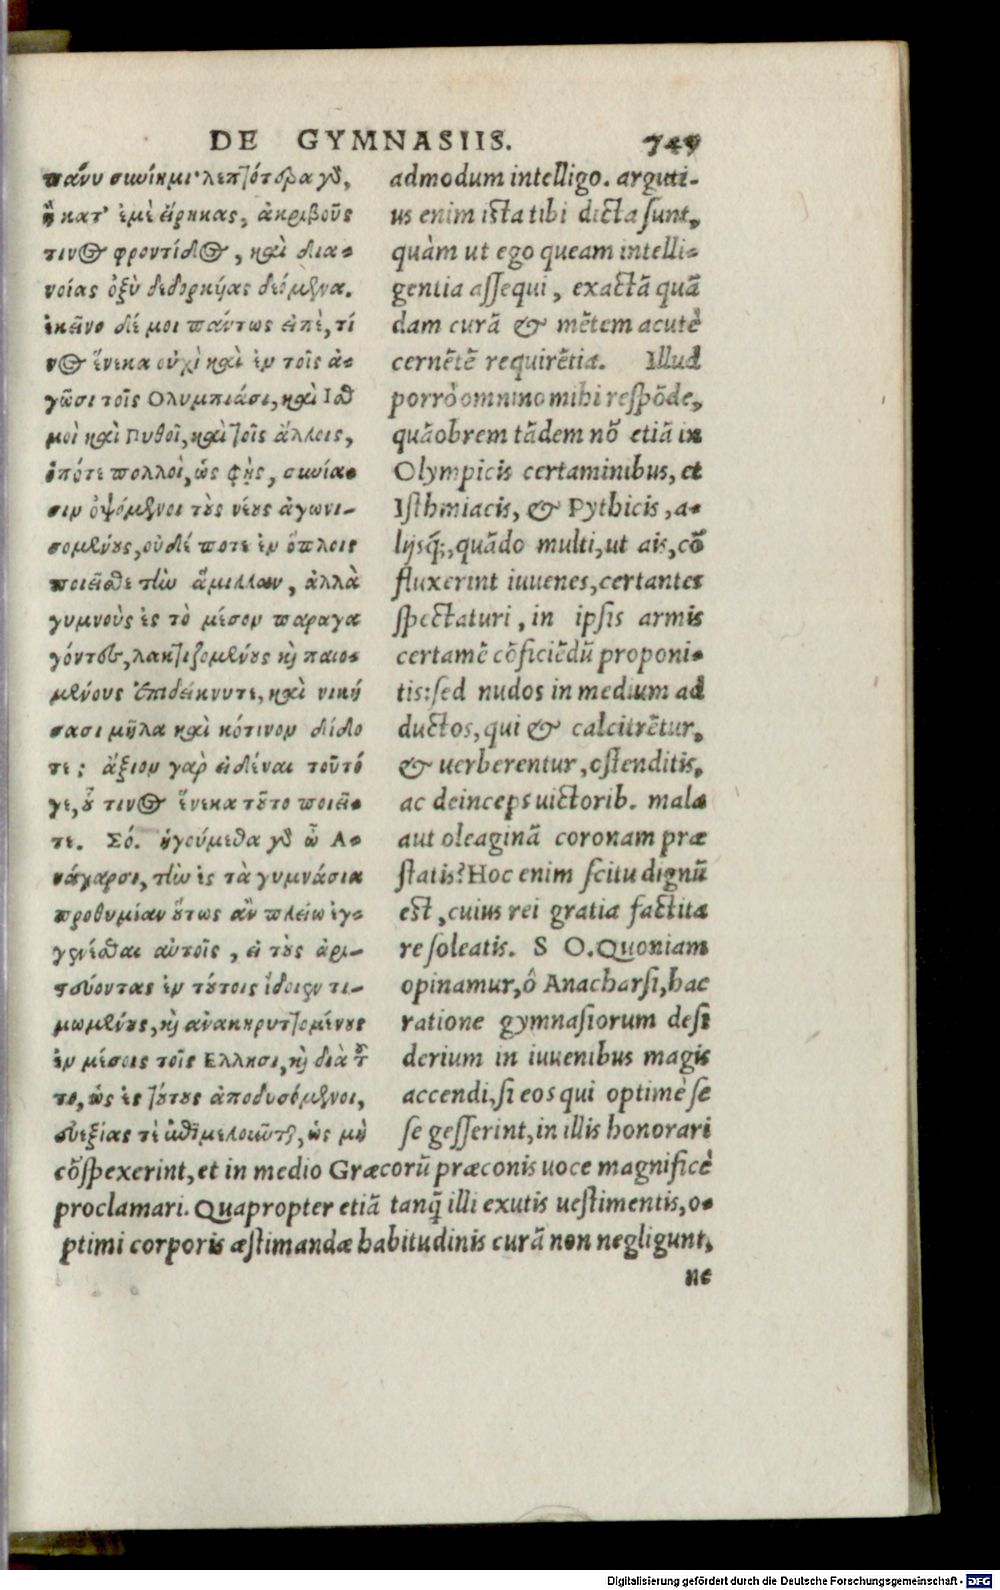 DE GYMNASIIS. 749
πάνυ συνίημι· λεπτότερα γὰρ,
ἢ κατ' ἐμὲ εἴρηκας, ἀκριβοῦς
τινος φροντίδος, καὶ δια-
νοίας ὀξὺ δεδορκυίας δεόμενα.
ἐκεῖνο δέ μοι πάντως εἰπὲ, τί
νος ἕνεκα οὐχὶ καὶ ἐν τοῖς ἀ-
γῶσι τοῖς Ολυμπιάσι, καὶ Ισθ
μοῖ καὶ Πυθοῖ, καὶ τοῖς ἄλλοις,
ὁπότε πολλοὶ, ὡς φῂς, συνία-
σιν ὀψόμενοι τοὺς νέους ἀγωνι-
σομένους, οὐδέ ποτε ἐν ὅπλοις
ποιεῖσθε τὴν ἅμιλλαν, ἀλλὰ
γυμνοὺς ἐς τὸ μέσον παραγα
γόντες, λακτιζομένους καὶ παιο-
μένους ἐπιδείκνυτε, καὶ νική
σασι μῆλα καὶ κότινον δίδο
τε; ἄξιον γὰρ εἰδέναι τοῦτό
γε, οὗ τινος ἕνεκα τοῦτο ποιεῖ-
τε. Σό. ἡγούμεθα γὰρ ὦ Α-
νάχαρσι, τὴν ἐς τὰ γυμνάσια
προθυμίαν οὕτως ἂν πλείω ἐγ-
γενέσθαι αὐτοῖς, εἰ τοὺς ἀρι-
στεύοντας ἐν τούτοις ἴδοιεν τι-
μωμένους, καὶ ἀνακηρυττομένους
ἐν μέσοις τοῖς Ελλησι, καὶ διὰ τοῦ
το, ὡς ἐς τούτους ἀποδυσόμενοι,
εὐεξίας τε ἐπιμελοῦνται, ὡς μὴ
admodum intelligo. arguti-
us enim ista tibi dicta sunt,
quàm ut ego queam intelli-
gentia assequi, exactã quã
dam curã & mẽtem acutè
cernẽtẽ requirẽtia. Illud
porrò omnino mihi respõde,
quãobrem tãdem nõ etiã in
Olympicis certaminibus, et
Isthmiacis, & Pythicis, a-
lijsq́;, quãdo multi, ut ais, cõ
fluxerint iuuenes, certantes
spectaturi, in ipsis armis
certamẽ cõficiẽdũ proponi-
tis: sed nudos in medium ad
ductos, qui & calcitrẽtur,
& uerberentur, ostenditis,
ac deinceps uictorib. mala
aut oleaginã coronam præ
statis? Hoc enim scitu dignũ
est, cuius rei gratia factita
re soleatis. S O. Quoniam
opinamur, ô Anacharsi, hac
ratione gymnasiorum desi
derium in iuuenibus magis
accendi, si eos qui optimè se
se gesserint, in illis honorari
cõspexerint, et in medio Græcorũ præconis uoce magnificè
proclamari. Quapropter etiã tanq̃ illi exutis uestimentis, o-
ptimi corporis æstimandæ habitudinis curã non negligunt,
ne
Digitalisierung gefördert durch die Deutsche Forschungsgemeinschaft - DFG